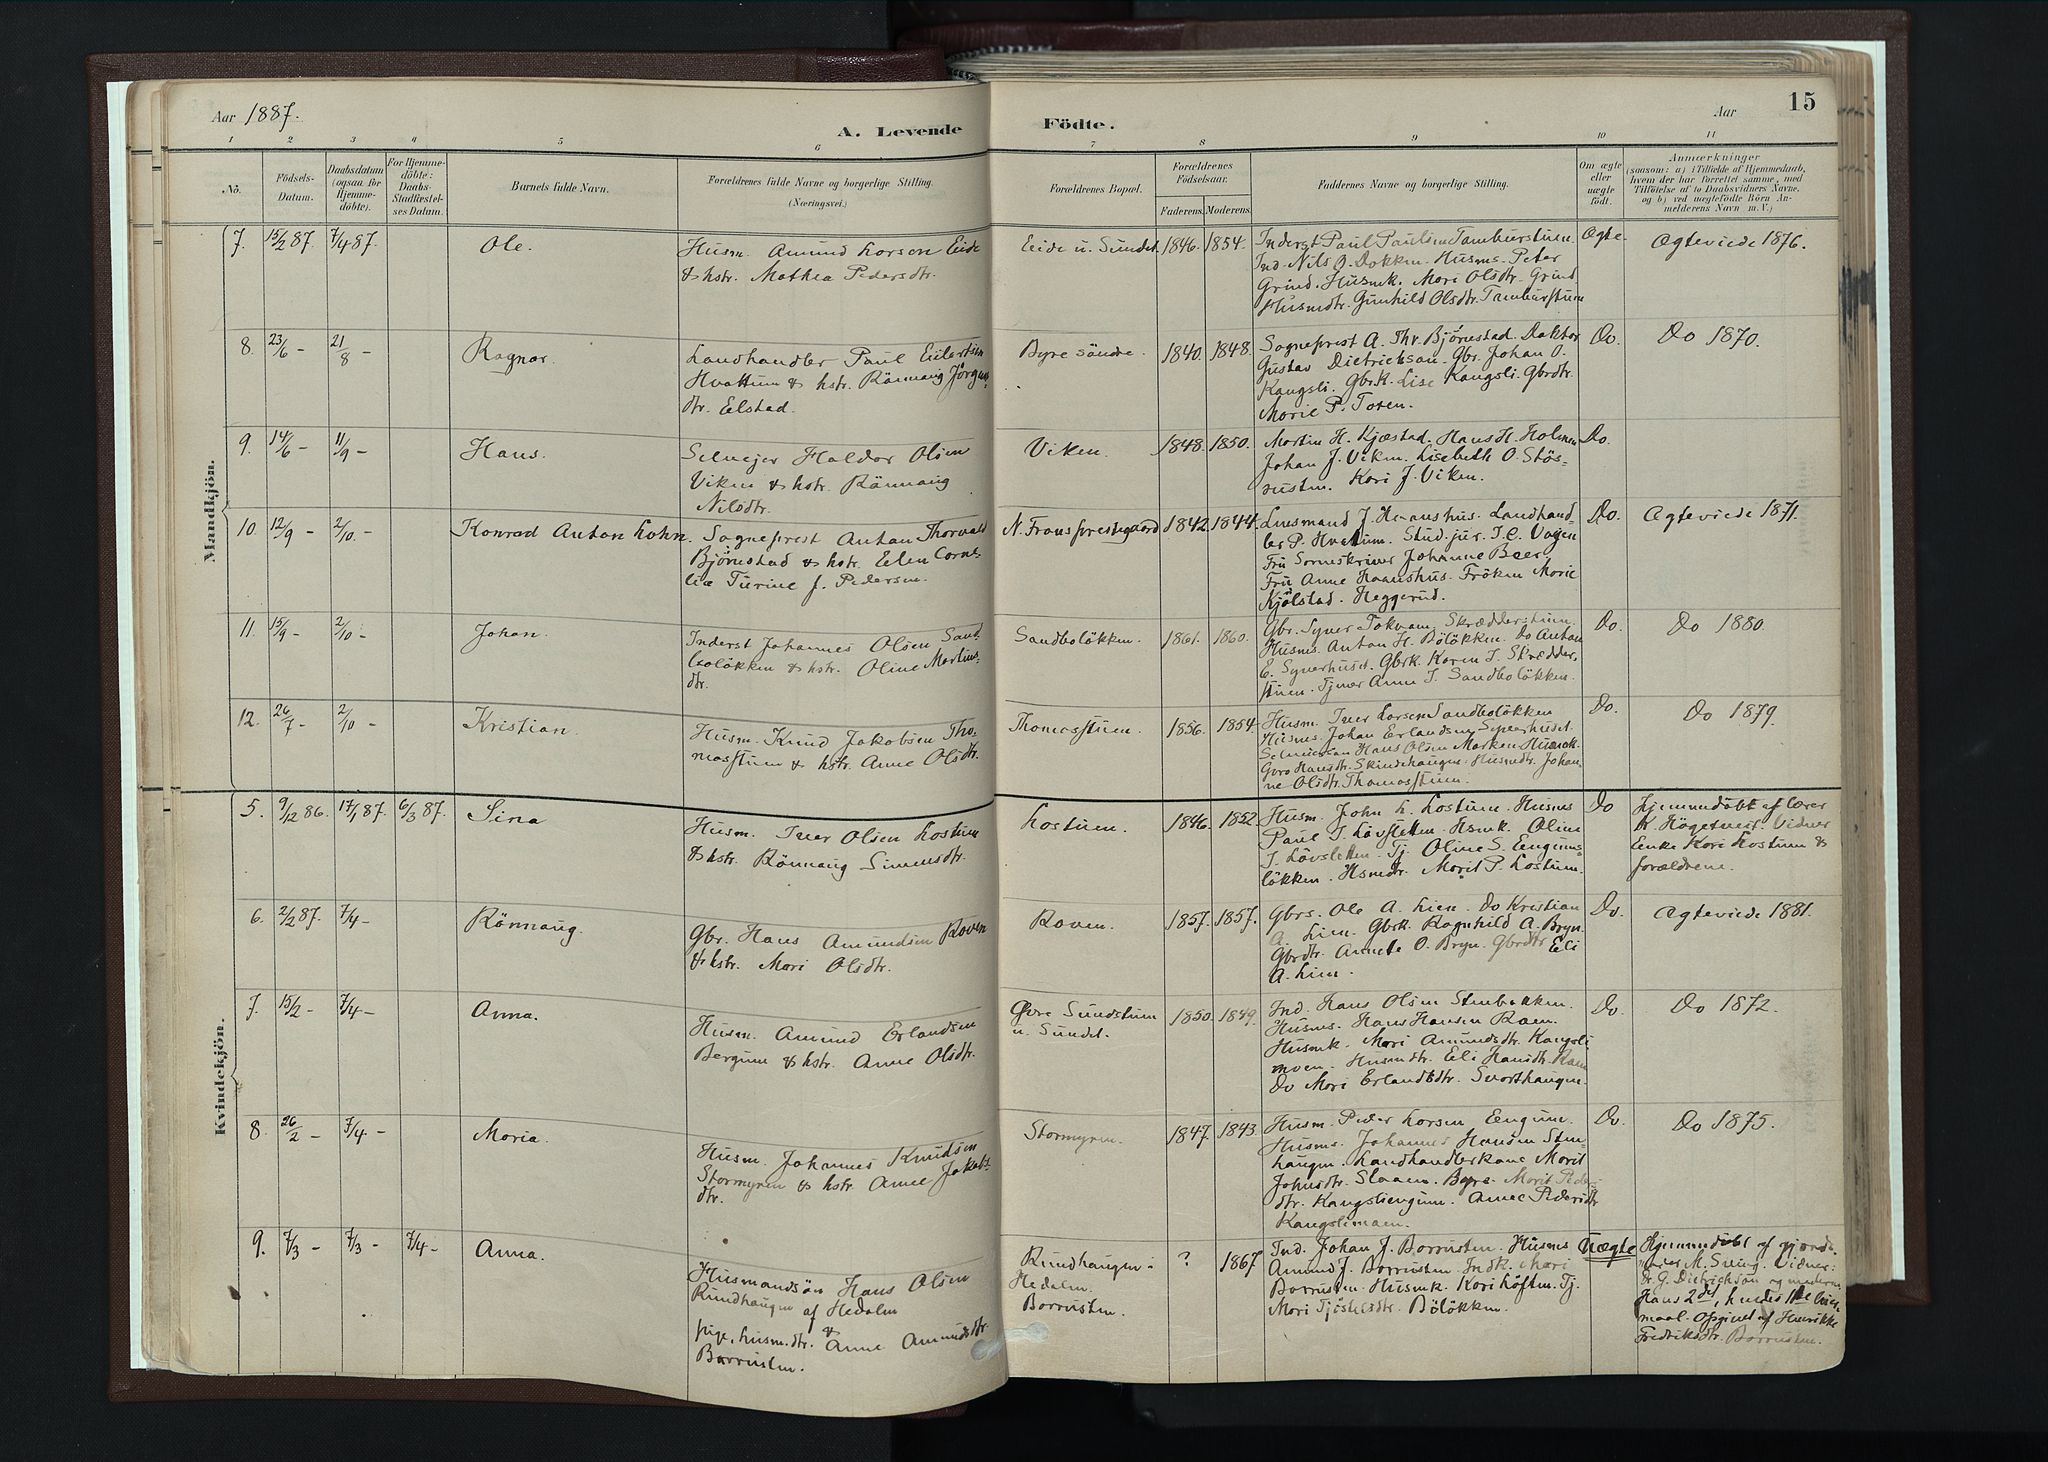 Aar 1887.
A. Levende Födte.
Aar
15
1 2 3 4 5 6 7 8 9 10 11
Nô.
Födsels-Datum.
Daabsdatum (ogsaa for Hjemme-döbte).
For Hjemme-döbte: Daabs-Stadfæstel-ses Datum.
Barnets fulde Navn.
Forældrenes fulde Navne og borgerlige Stilling.
(Næringsvei.)
Forældrenes Bopæl.
Forældrenes Födselsaar.
Faderens. Moderens.
Faddernes Navne og borgerlige Stilling.
Om ægte eller uægte födt.
Anmærkninger
(saasom: a) i Tilfælde af Hjemmedaab,
hvem der har forrettet samme, med
Tilföielse af to Daabsvidners Navne.
og b) ved uægtefödte Börn An-
melderens Navn m. V.)
Mandkjön.
7. 15/2 87. 7/4 87. Ole.
Husm. Amund Larsen Eide
& hstr. Mathea Pedersdtr.
Eide u. Sundet. 1846. 1854.
Inderst Paul Paulsen Tamburstuen.
Ind. Nils O. Dokken. Husms. Peter
Grind. Husmk. Mari Olsdtr. Grind
Husmdtr. Gunhild Olsdtr. Tamburstuen
Ægte. Ægteviede 1876.
8. 23/6 – 21/8 – Ragnar.
Landhandler Paul Eilertsen
Hvattum & hstr. Rönnaug Jörgens-
dtr. Elstad.
Byre söndre. 1840. 1848.
Sogneprest A. Thv. Bjørnestad. Doktor
Gustav Dietrichson. Gbr. Johan O.
Kangsli. Gbrk. Lise Kangsli. Gbrdtr.
Marie P. Toten.
Do. Do 1870.
9. 14/6 – 11/9 – Hans.
Selveier Haldor Olsen
Viken & hstr. Rönnaug
Nilsdtr.
Viken. 1848. 1850.
Martin H. Kjæstad. Hans H. Holmen
Johan J. Viken. Lisebeth O. Stös-
rusten. Kari J. Viken.
Do.
10. 12/9 – 2/10. – Konrad Anton Lohn.
Sogneprest Anton Thorvald
Bjørnestad & hstr. Elen Corne-
lia Turine f. Pedersen.
N. Frons prestegaard 1842. 1844.
Lensmand J. Haanshus. Landhand-
ler P. Hvattum. Stud. jur. J. C. Vogen
Fru Sorenskriver Johanne Beer
Fru Anne Haanshus. Fröken Marie
Kjölstad. Heggerud.
Do. Ægteviede 1871.
11. 15/9 – 2/10 – Johan.
Inderst Johannes Olsen Sand-
boløkken & hstr. Oline Martins-
dtr.
Sandboløkken. 1861. 1860.
Gbr. Syver Tokvam. Skrædderstuen.
Husms. Anton H. Böløkken. Do Anton
E. Syverhuset. Gbrk. Karen J. Skrædder-
stuen. Tjener Anne J. Sandboløkken.
Do. Do 1880.
12. 26/7 – 2/10 – Kristian.
Husm. Knud Jakobsen Tho-
masstuen & hstr. Anne Olsdtr.
Thomasstuen. 1856. 1854.
Husm. Iver Larsen Sandboløkken
Husms. Johan Erlandsen Syverhuset.
Hans Olsen Marken. Husmk.
Guro Hansdtr. Skindehaugen. Husmdtr. Johan-
ne Olsdtr. Thomasstuen.
Do. Do 1879.
Kvindekjön.
5. 9/12 86. 17/1 87. 6/3 87. Sina
Husm. Iver Olsen Lostuen
& hstr. Rönnaug Simensdtr.
Lostuen. 1846. 1852.
Husm. John L. Lostuen. Husms
Paul J. Lövsletten. Hsmk. Oline
J. Lövsletten. Tj. Oline S. Eengums-
løkken. Hsmdtr. Marit P. Lostuen.
Do Hjemmedöbt af lærer
K. Högetveit. Vidner
Enke Kari Lostuen &
forældrene.
6. 2/2 87. 7/4 – Rönnaug.
Gbr. Hans Amundsen Roven
& hstr. Mari Olsdtr.
Roven. 1857. 1857.
Gbrs. Ole A. Lien. Do Kristian
A. Lien. Gbrk. Ragnhild A. Bryn.
Gbrdtr. Annete O. Bryn. Gbrdtr Eli
A. Lien.
Do. Ægteviede 1881.
7. 15/2 – 7/4 – Anna.
Husm. Amund Erlandsen
Bergum & hstr. Anne Olsdtr.
Øvre Sundstuen
u. Sundet. 1850. 1849.
Ind. Hans Olsen Stenbakken.
Husms. Hans Hansen Raen.
Husmk. Mari Amundsdtr. Kangsli
moen. Husmdtr. Eli Hansdtr. Raen
Do Mari Erlandsdtr. Svarthaugen.
Do. Do 1872.
8. 26/2 – 7/4 – Maria.
Husm. Johannes Knudsen
Stormyren & hstr. Anne Jakobs-
dtr.
Stormyren. 1847. 1843.
Husm. Peder Larsen Eengum.
Husms. Johannes Hansen Sten-
haugen. Landhandlerkone Marit
Johnsdtr. Slaaen. Byre. Marit Peders-
dtr. Kangsliengum. Anne Pedersdtr
Kangslimoen.
Do. Do 1875.
9. 7/3 – 7/3 – 7/4 – Anna.
Husmandsön Hans Olsen
Rundhaugen af Hedalen
&
pige, husm.dtr. Anne Amundsdtr.
Borrusten.
Rundhaugen i
Hedalen.
Borrusten. ? 1867.
Ind. Johan J. Borrusten. Husms
Amund J. Borrusten. Indk. Mari
Borrusten. Husmk. Kari Löften. Tj.
Mari Tjöstelsdtr. Böløkken.
Uægte Hjemmedöbt af gjorde-
moder M. Sveng. Vidner:
Dr. G. Dietrichson og moderen
Hans 2det, hendes 1ste leier-
maal. Opgivet af Henrikke
Fredriksdtr. Borrusten.